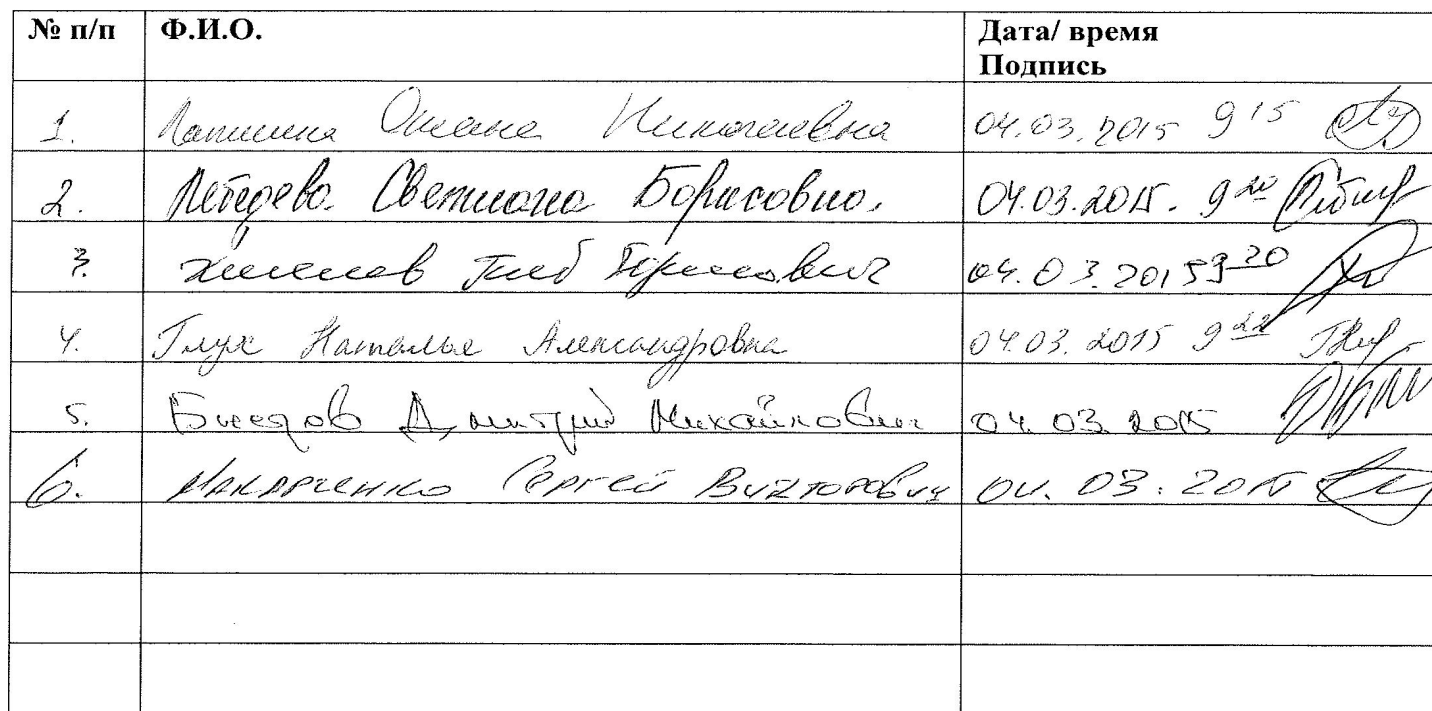 № п/п Ф.И.О. Дата/ время
Подпись
1. Оксана Николаевна 04.03.2015 9 15
2. Лебедева Светлана Борисовна. 04.03.2015. 9 20
3. Глеб Борисович 04.03.2015 9 20
4. Глух Наталья Александровна 04.03.2015 9 22
5. Дмитрий Михайлович 04.03.2015
6. Макарченко Сергей Викторович 04.03.2015